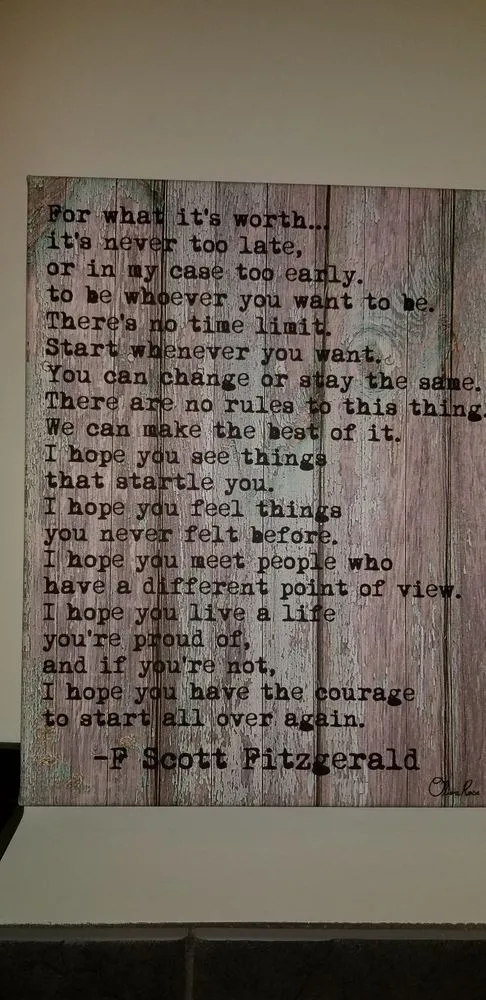 For what it's worth...
it's never too late,
or in my case too early.
to be whoever you want to be.
There's no time limit.
Start whenever you want.
You can change or stay the same.
There are no rules to this thing.
We can make the best of it.
I hope you see things
that startle you.
I hope you feel things
you never felt before.
I hope you meet people who
have a different point of view.
I hope you live a life
you're proud of,
and if you're not,
I hope you have the courage
to start all over again.
-F Scott Fitzgerald